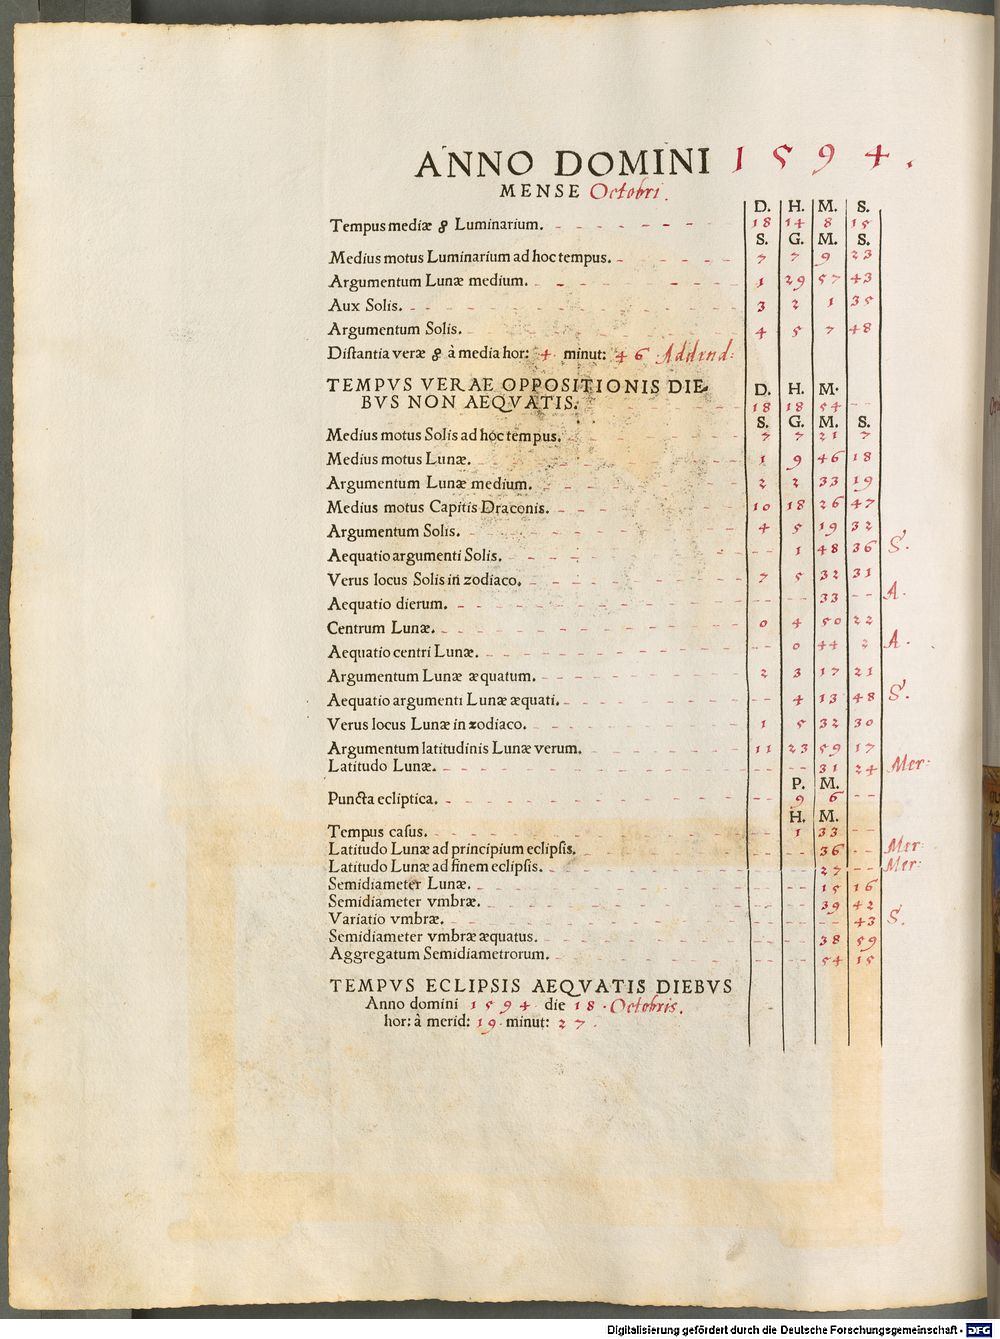 ANNO DOMINI 1594.
MENSE Octobri.
D. H. M. S.
Tempus mediæ ☍ Luminarium. 18 14 8 15
S. G. M. S.
Medius motus Luminarium ad hoc tempus. 7 7 9 23
Argumentum Lunæ medium. 1 29 57 43
Aux Solis. 3 2 1 35
Argumentum Solis. 4 5 7 48
Distantia veræ ☍ à media hor: 4 minut: 46 Addend:
TEMPVS VERAE OPPOSITIONIS DIE- D. H. M.
BVS NON AEQVATIS. 18 18 54 --
S. G. M. S.
Medius motus Solis ad hoc tempus. 7 7 21 7
Medius motus Lunæ. 1 9 46 18
Argumentum Lunæ medium. 2 2 33 19
Medius motus Capitis Draconis. 10 18 26 47
Argumentum Solis. 4 5 19 32
Aequatio argumenti Solis. -- 1 48 36 S.
Verus locus Solis in zodiaco. 7 5 32 31
Aequatio dierum. -- -- 33 -- A.
Centrum Lunæ. 0 4 50 22
Aequatio centri Lunæ. -- 0 44 2 A.
Argumentum Lunæ æquatum. 2 3 17 21
Aequatio argumenti Lunæ æquati. -- 4 13 48 S.
Verus locus Lunæ in zodiaco. 1 5 32 30
Argumentum latitudinis Lunæ verum. 11 23 59 17
Latitudo Lunæ. -- -- 31 24 Mer:
P. M.
Puncta ecliptica. -- 9 6 --
H. M.
Tempus casus. -- 1 33 --
Latitudo Lunæ ad principium eclipsis. -- -- 36 -- Mer:
Latitudo Lunæ ad finem eclipsis. -- -- 27 -- Mer:
Semidiameter Lunæ. -- -- 15 16
Semidiameter vmbræ. -- -- 39 42
Variatio vmbræ. -- -- -- 43 S.
Semidiameter vmbræ æquatus. -- -- 38 59
Aggregatum Semidiametrorum. -- -- 54 15
TEMPVS ECLIPSIS AEQVATIS DIEBVS
Anno domini 1594 die 18. Octobris.
hor: à merid: 19. minut: 27.
Digitalisierung gefördert durch die Deutsche Forschungsgemeinschaft - DFG